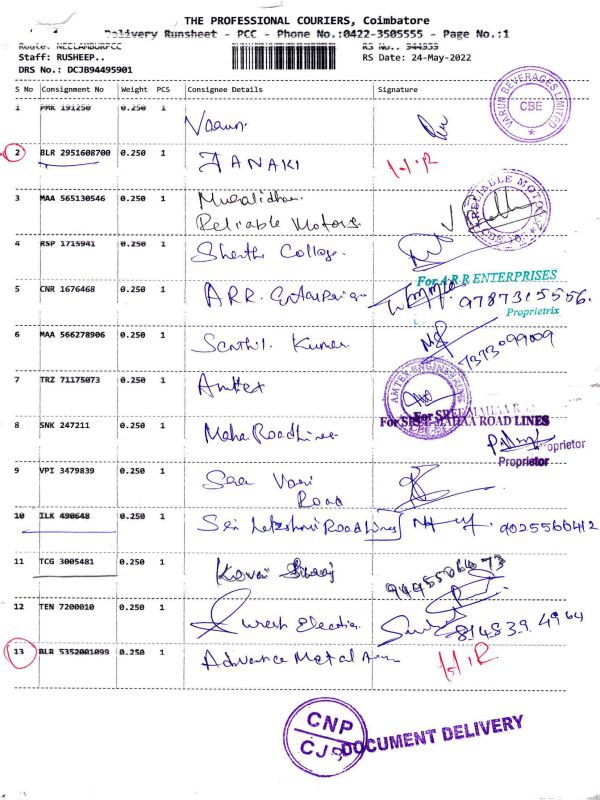 THE PROFESSIONAL COURIERS, Coimbatore
Delivery Runsheet - PCC - Phone No.:0422-3505555 - Page No.:1
Route: NEELAMBURPCC
RS No.: 944959
Staff: RUSHEEP..
RS Date: 24-May-2022
DRS No.: DCJB94495901
S No Consignment No Weight PCS Consignee Details Signature
1 PMK 191250 0.250 1 Vaarun
VARUN BEVERAGES LIMITED CBE
2 BLR 2951608700 0.250 1 JANAKI H.R
3 MAA 565130546 0.250 1 Muralidhar
Reliable Motors
RELIABLE MOTORS
4 RSP 1715941 0.250 1 College
For A.R.R ENTERPRISES
5 CNR 1676468 0.250 1 A.R.R. Enterprises 9787315556
Proprietrix
6 MAA 566278906 0.250 1 Senthil Kumar 7373099009
7 TRZ 71175073 0.250 1 Amtex
AMTEX ENGINEERING
8 SNK 247211 0.250 1 Maha Roadlines
For SREE MAHAA ROAD LINES
Proprietor
Proprietor
9 VPI 3479839 0.250 1 Sea Vari
Road
10 ILK 490648 0.250 1 Sri Lakshmi Road Lines 9025560412
11 TCG 3005481 0.250 1 Kovai
12 TEN 7200010 0.250 1 Suresh
13 BLR 5352001099 0.250 1 Advance Metal H.R
CNP
CJB
DOCUMENT DELIVERY